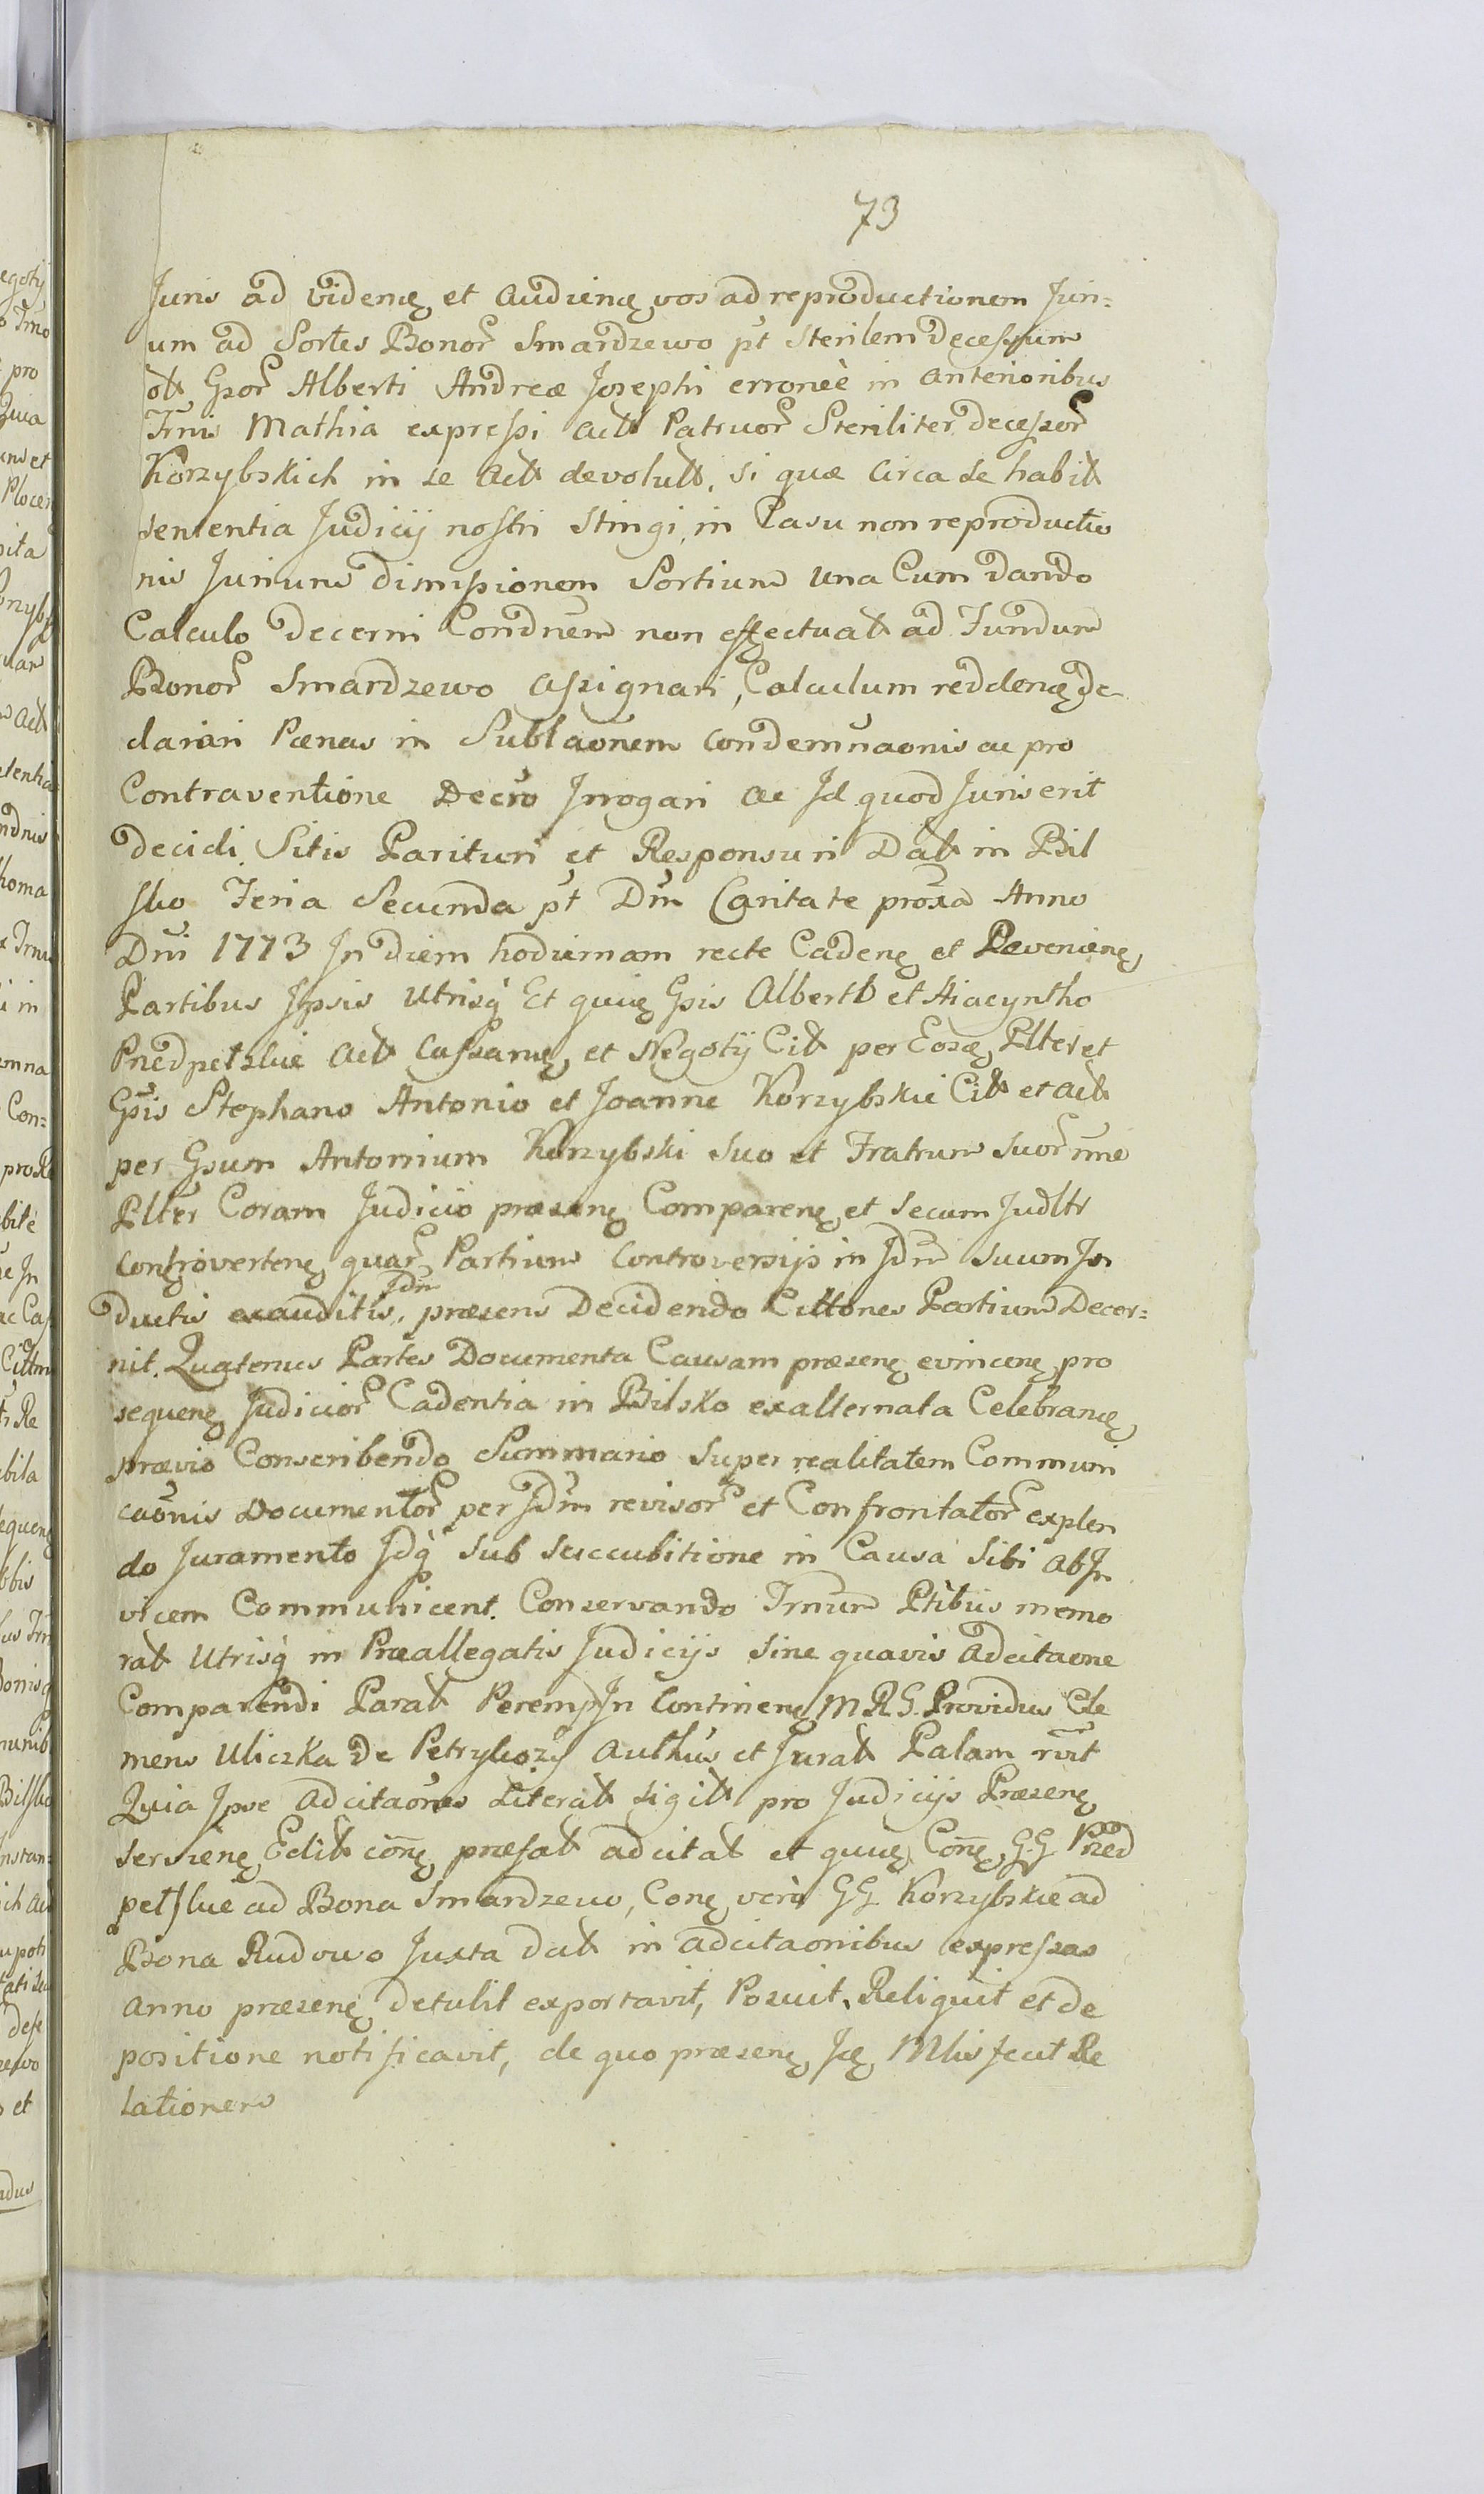 73
Juris ad videnę et audienę vos ad reproductionem Juri=
um ad Sortes Bonor Smardzewo pt sterilem decessum
olt Gsor Alberti Andreæ Josephi erroneè in anterioribus
Trnis Mathia expressi actt Patruor Steriliter decessor
Korzybskich in se actt devolutt, si quæ circa se habitt
sententia Judicij nostri stingi, in Casu non reproductio
nis Jurium dimissionem Sortium una Cum dando
Calculo decerni Condnem non effectuatt ad Fundum
Bonor Smardzewo assignari, Calculum reddenę de
clarari Pænas in Sublaonem condemnaonis ac pro
Contraventione Decro Irrogari ac Id quod Juris erit
decidi. Sitis Parituri et Responsuri Datt in Bil
sko Feria Secunda pt Dm Caritate proxa Anno
Dni 1773 In diem hodiernam recte Cadenę et Pævenienę
Partibus Ipsis Utrisq Et quiuę Gsis Alberto et Hiacyntho
Przedpełskie actt Cassanę et Negotij Citt per Eosdę Plter et
Gsis Stephano Antonio et Joanne Korzybskie Citt et actt
per Gsum Antonium Korzybski suo et Fratrum suor nne
Plter Coram Judicio præsenę Comparenę et secum Judltr
Controvertenę quar Partium Controversijs in Jdm suum In
ductis exauditis, Jdm præsens Decidendo Cittones Partium Decer=
nit. Quatenus Partes Documenta Causam præsenę evincenę pro
sequenę Judicior Cadentia in Bilsko exalternata Celebranę
prævio Conscribendo Summario super realitatem Communi
caonis Documentor per Jdm revisor et Confrontator explen
do Juramento Idq sub succubitione in Causa sibi ab In
vicem Communicent. Conservando Trnum Ptibus memo
ratt Utrisq in Præallegatis Judicijs sine quavis adcitaone
Comparendi Paratt Peremp In Continenę MRS. Providus Cle
mens Uliczka de Petrykozy authus et Juratt Palam rvit
Quia Ipse adcitaones Literatt sigitt pro Judicijs Præsenę
servienę Editt conę præfatt adcitatt et quiuę Conę GG Przed
pełskie ad Bona Smardzewo, Conę verò GG Korzybskie ad
Bona Rudowo Juxta datt in adcitaonibus expressas
anno præsenę detulit exportavit, Posuit, Reliquit et de
positione notificavit, de quo præsenę Ję Mlis fecit Re
lationem